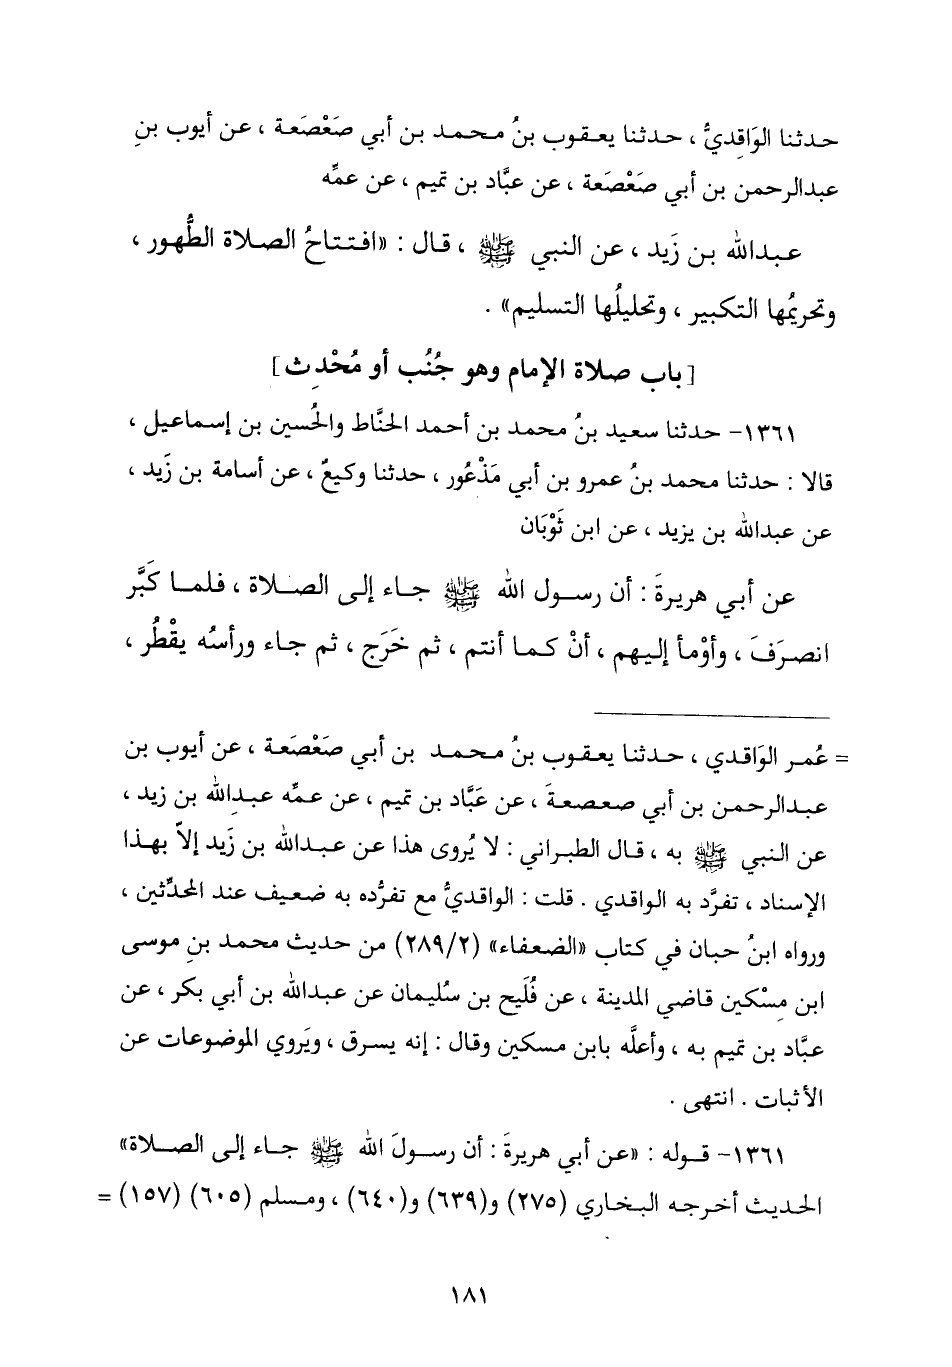 حدثنا الوَاقِديُّ ، حدثنا يعقوب بنُ محمد بن أبي صَعْصَعة ، عن أيوب بنِ
عبدالرحمن بن أبي صَعْصَعة ، عن عبَّاد بن تميم ، عن عمِّه
عبدالله بن زَيد ، عن النبي ﷺ ، قال : «افتتاحُ الصلاة الطُّهور ،
وتحريمُها التكبير ، وتحليلُها التسليم» .
[باب صلاة الإمام وهو جُنُب أو مُحْدِث]
١٣٦١- حدثنا سعيد بنُ محمد بن أحمد الحنَّاط والحُسين بن إسماعيل ،
قالا : حدثنا محمد بنُ عمرو بن أبي مَذْعُور ، حدثنا وكيعٌ ، عن أسامة بن زَيد ،
عن عبدالله بن يزيد ، عن ابن ثَوْبَان
عن أبي هريرةَ : أن رسول الله ﷺ جاء إلى الصلاة ، فلما كَبَّر
انصرَفَ ، وأوْمأ إليهم ، أنْ كما أنتم ، ثم خَرَج ، ثم جاء ورأسُه يقْطُر ،
= عُمر الوَاقدي ، حدثنا يعقوب بنُ محمد بن أبي صَعْصَعة ، عن أيوب بن
عبدالرحمن بن أبي صعصعةَ ، عن عَبَّاد بن تميم ، عن عمِّه عبدالله بن زيد ،
عن النبي ﷺ به ، قال الطبراني : لا يُروى هذا عن عبدالله بن زَيد إلاّ بهذا
الإسناد ، تفرَّد به الواقدي . قلت : الواقديُّ مع تفرُّده به ضعيف عند المحدِّثين ،
ورواه ابنُ حبان في كتاب «الضعفاء» (٢٨٩/٢) من حديث محمد بنِ موسى
ابن مِسْكين قاضي المدينة ، عن فُلَيح بن سُليمان عن عبدالله بن أبي بكر ، عن
عبَّاد بن تميم به ، وأعلَّه بابن مسكين وقال : إنه يسرق ، ويَروي الموضوعات عن
الأثبات . انتهى .
١٣٦١- قوله : «عن أبي هريرةَ : أن رسولَ الله ﷺ جاء إلى الصلاة»
الحديث أخرجه البخاري (٢٧٥) و(٦٣٩) و(٦٤٠) ، ومسلم (٦٠٥) (١٥٧) =
١٨١